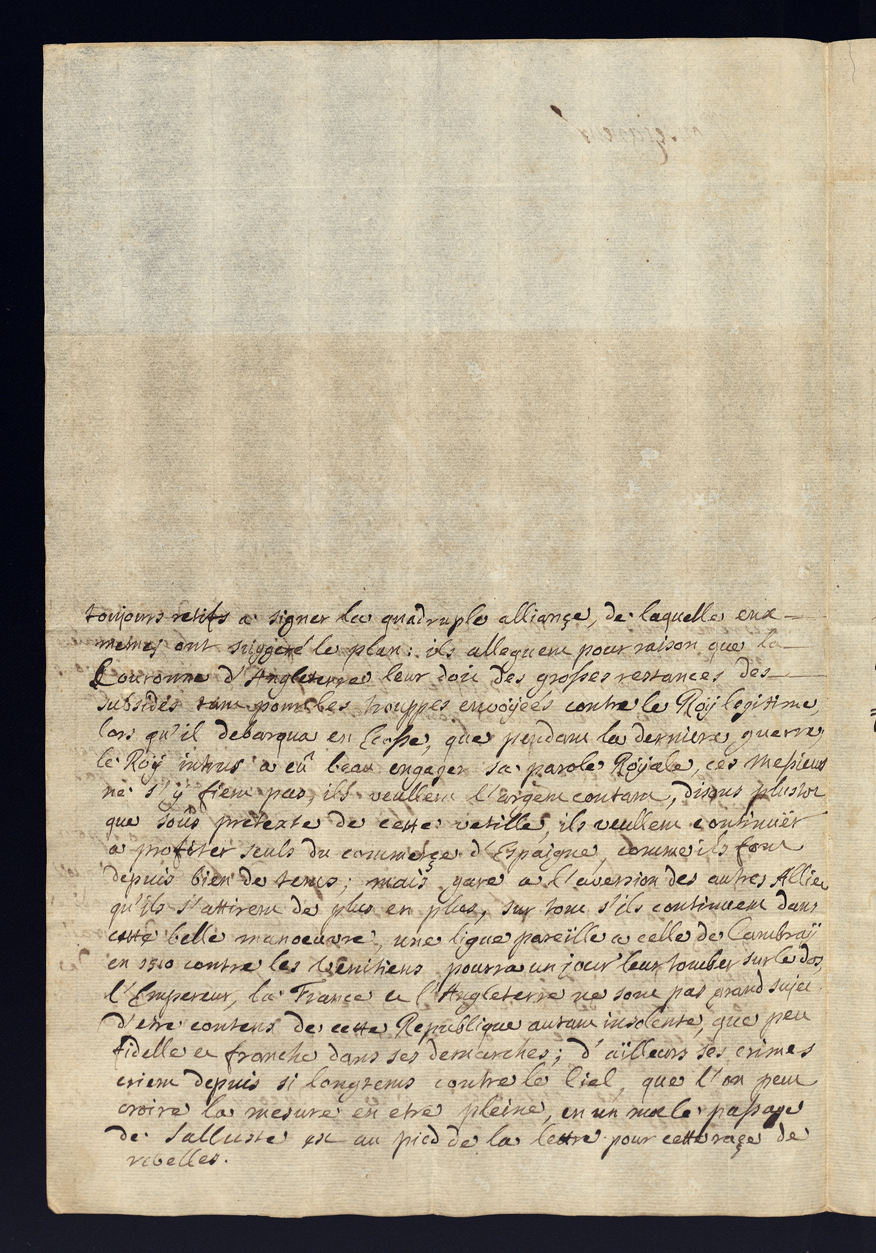 toujours retifs a signer la quadruple alliançe, de laquelle eux-
memes ont suggeré le plan: ils alleguent pour raison que la
Couronne d'Angleterre leur doit des grosses restances des
subsides tant pour les trouppes envoÿeés contre le Roÿ legitime
lors qu'il debarqua en Ecosse, que pendant la derniere guerre,
le Roÿ intrus a eû beau engager sa parole Roÿale, ces messieurs
ne s'ÿ fient pas, ils veullent l'argent contant, disons plustot
que sous pretexte de cette vetille, ils veullent continuër
a profiter seuls du commerçe d'Espaigne, comme ils font
depuis bien de tems; mais gare a l'aversion des autres Alliez
qu'ils s'attirent de plus en plus, sur tout s'ils continuent dans
cette belle manoeuvre, une ligue pareille a celle de Cambraÿ
en 1510 contre les Venitiens pourra un jour leur tomber sur le dos,
l'Empereur, la France et l'Angleterre ne sont pas grand sujet
d'etre contens de cette Republique autant insolente, que peu
fidelle et franche dans ses demarches; d'aïlleurs ses crimes
crient depuis si longtems contre le Ciel, que l'on peut
croire la mesure en etre pleine, en un mot le passage
de Salluste est au pied de la lettre pour cette raçe de
rebelles.